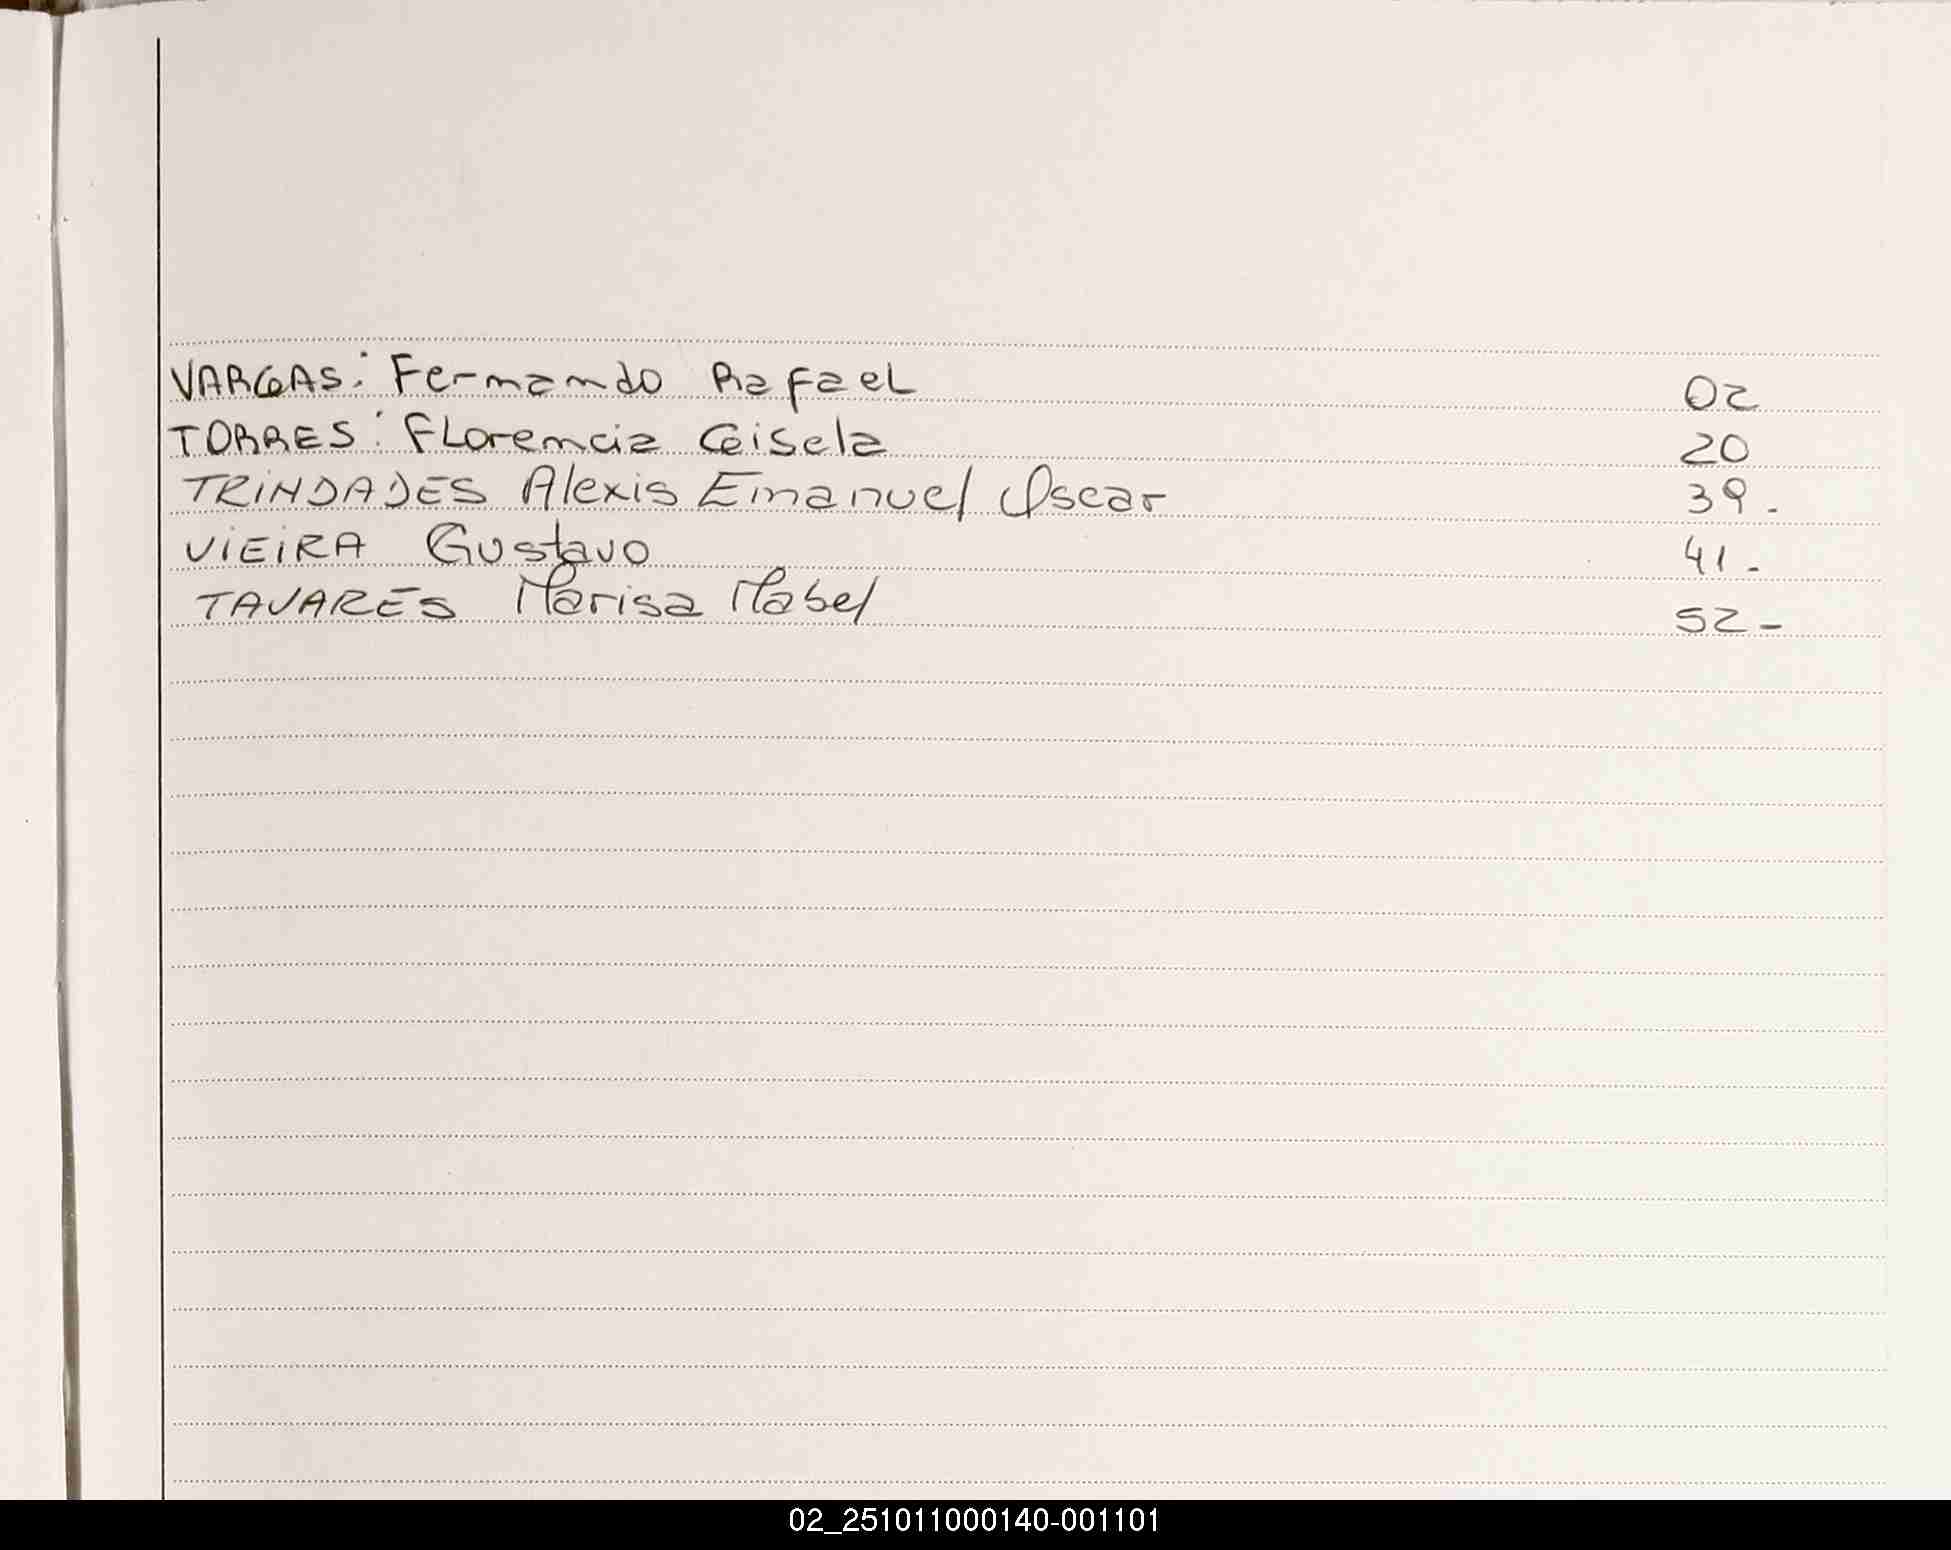 VARGAS: Fernando Rafael 02
TORRES: Florencia Gisela 20
TRINDADES Alexis Emanuel Oscar 39.
VIEIRA Gustavo 41.
TAVARES Marisa Mabel 52-
02_251011000140-001101